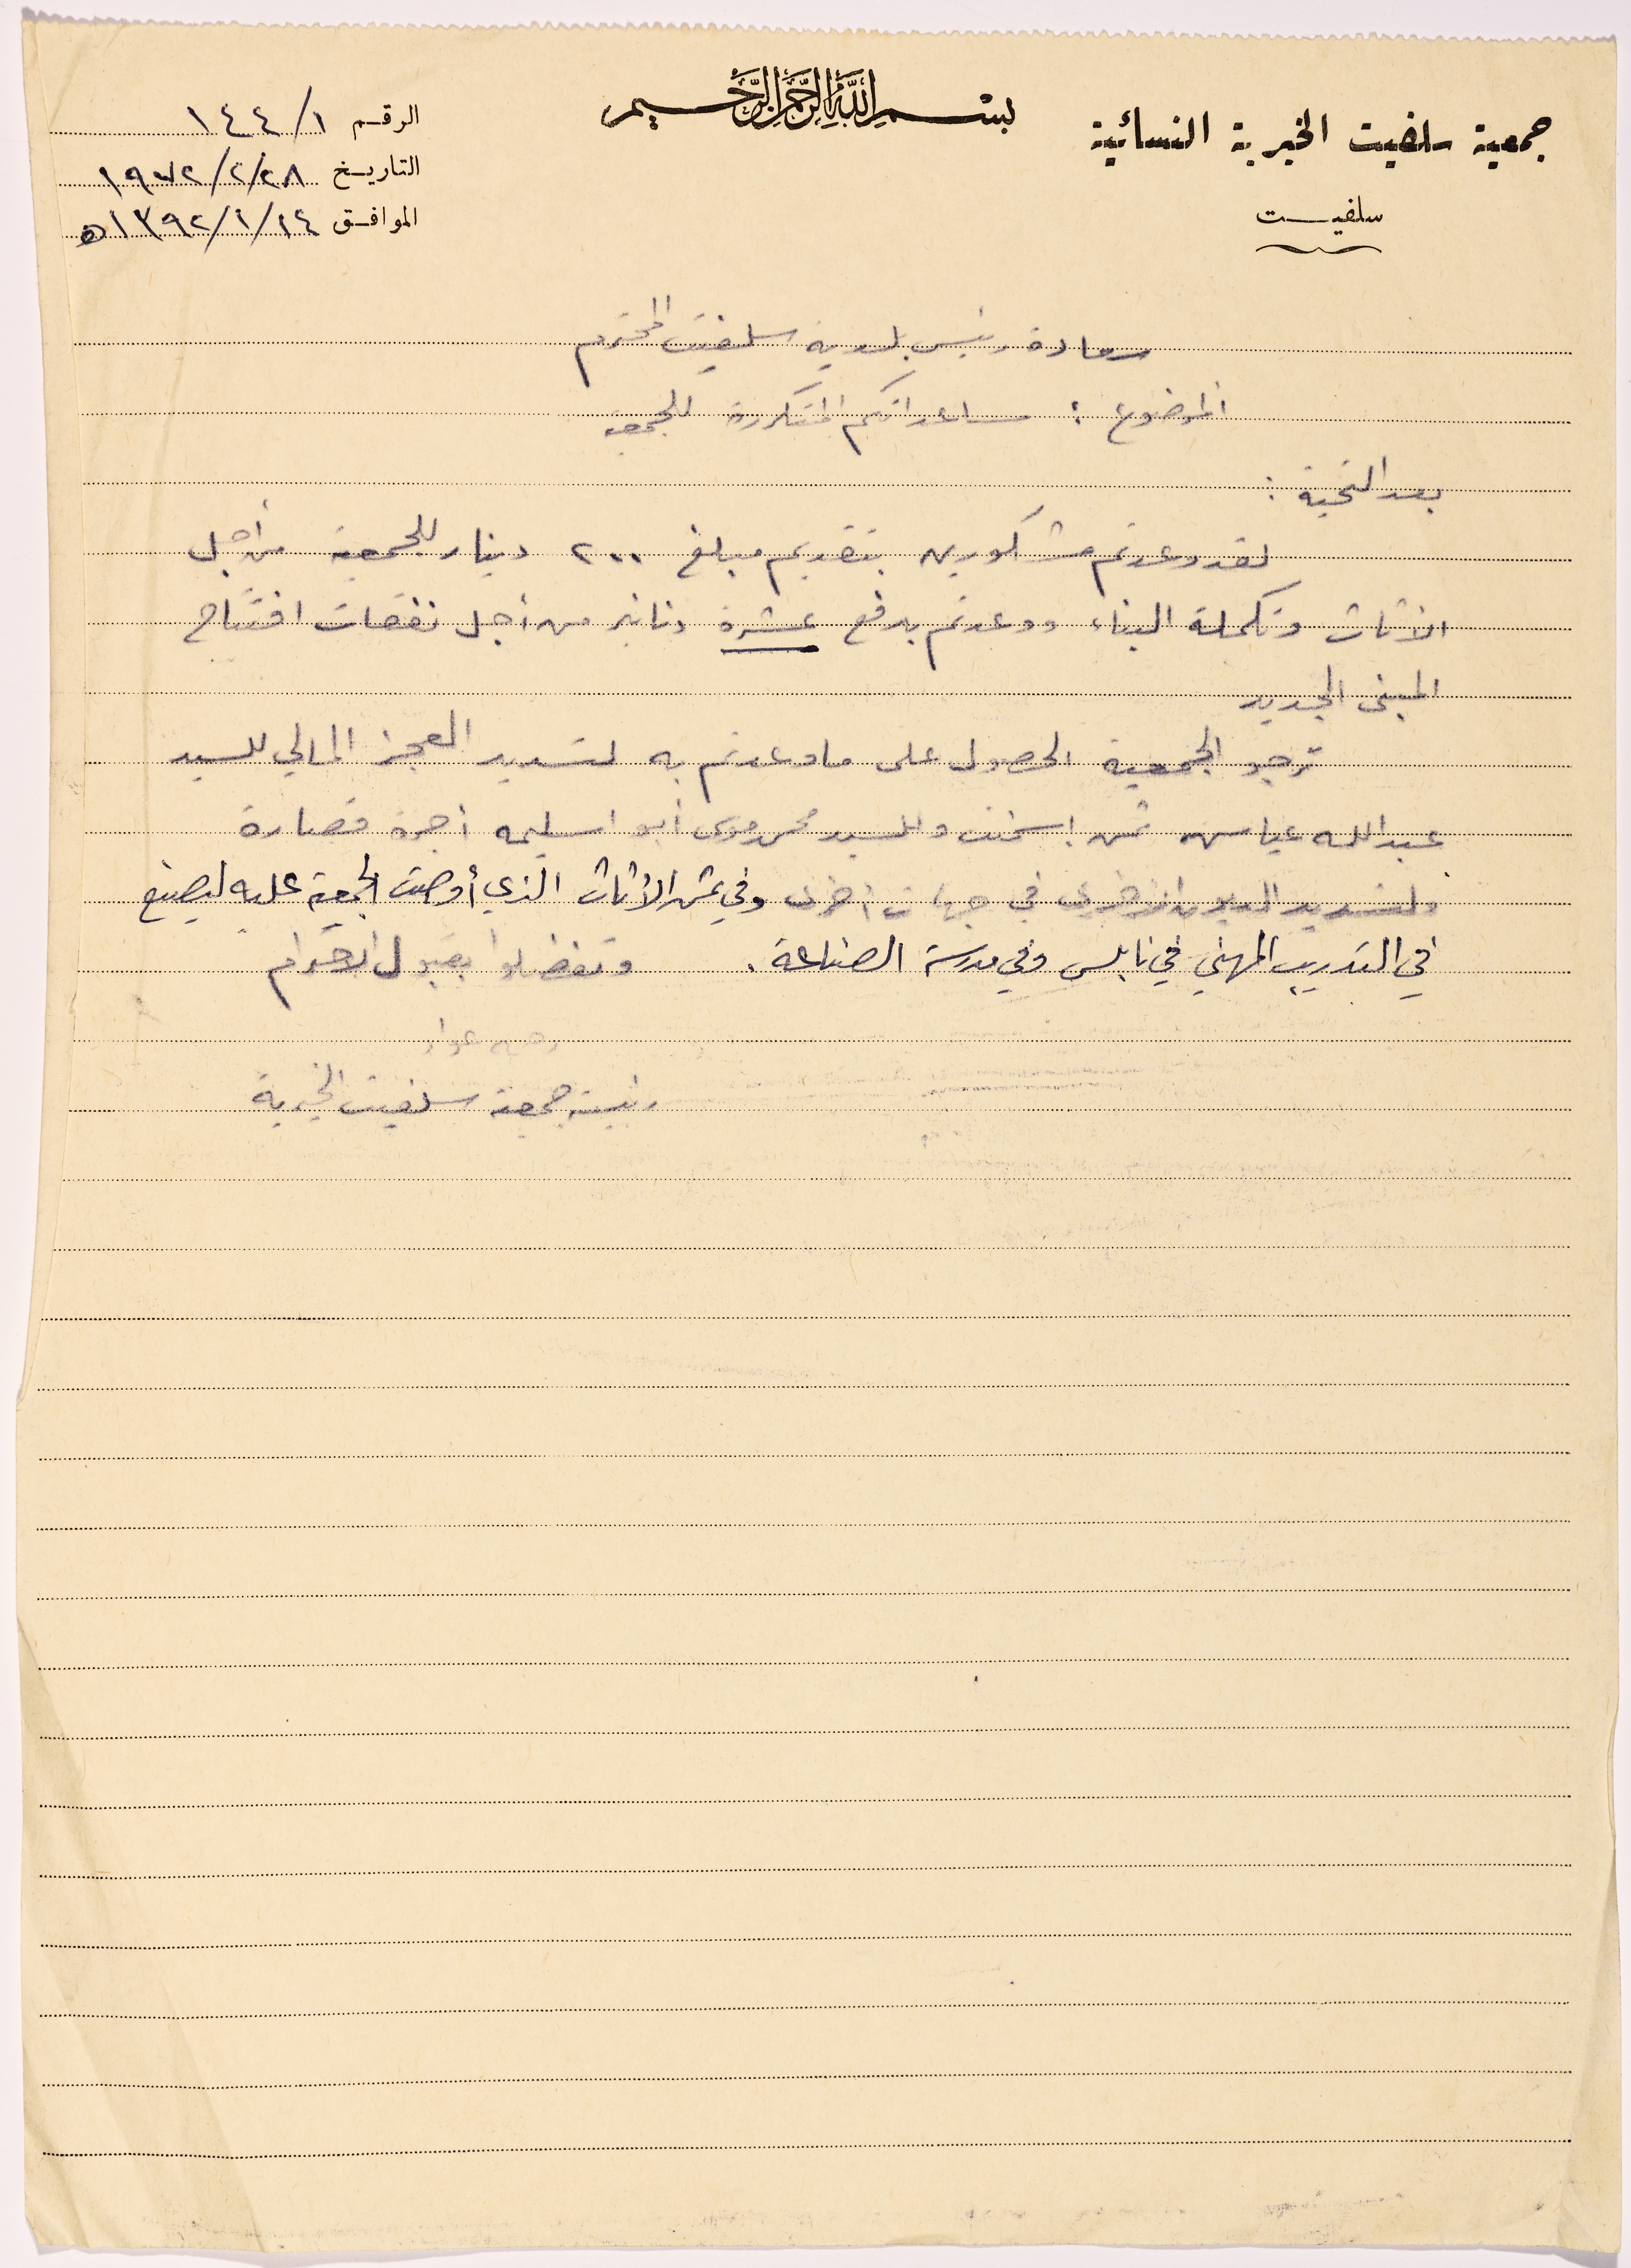 بسم الله الرحمن الرحيم
جمعية سلفيت الخيرية النسائية
سلفيت
الرقم ١٤٤/١
التاريخ ١٩٧٢/٢/٢٨
الموافق ١٣٩٢/١/١٤ه
سعادة رئيس بلدية سلفيت المحترم
الموضوع : مساعداتكم المتكررة للجمعية
بعد التحية :
لقد وعدتم مشكورين بتقديم مبلغ ٢٠٠ دينار للجمعية من أجل
الأثاث وتكملة البناء ووعدتم بدفع عشرة دنانير من أجل نفقات افتتاح
المبنى الجديد
ترجو الجمعية الحصول على ما وعدتم به لتسديد العجز المالي للسيد
عبد الله عياس ثمن اسمنت وللسيد محمد موسى أبو اسليمه أجرة قصارة
ولتسديد الديون الأخرى في جهات أخرى وفي ثمن الأثاث الذي أوصت الجمعية عليه ليصنع
في التدريب المهني في نابلس وفي مدرسة الصناعة . وتفضلوا بقبول الاحترام
رئيسة جمعية سلفيت الخيرية